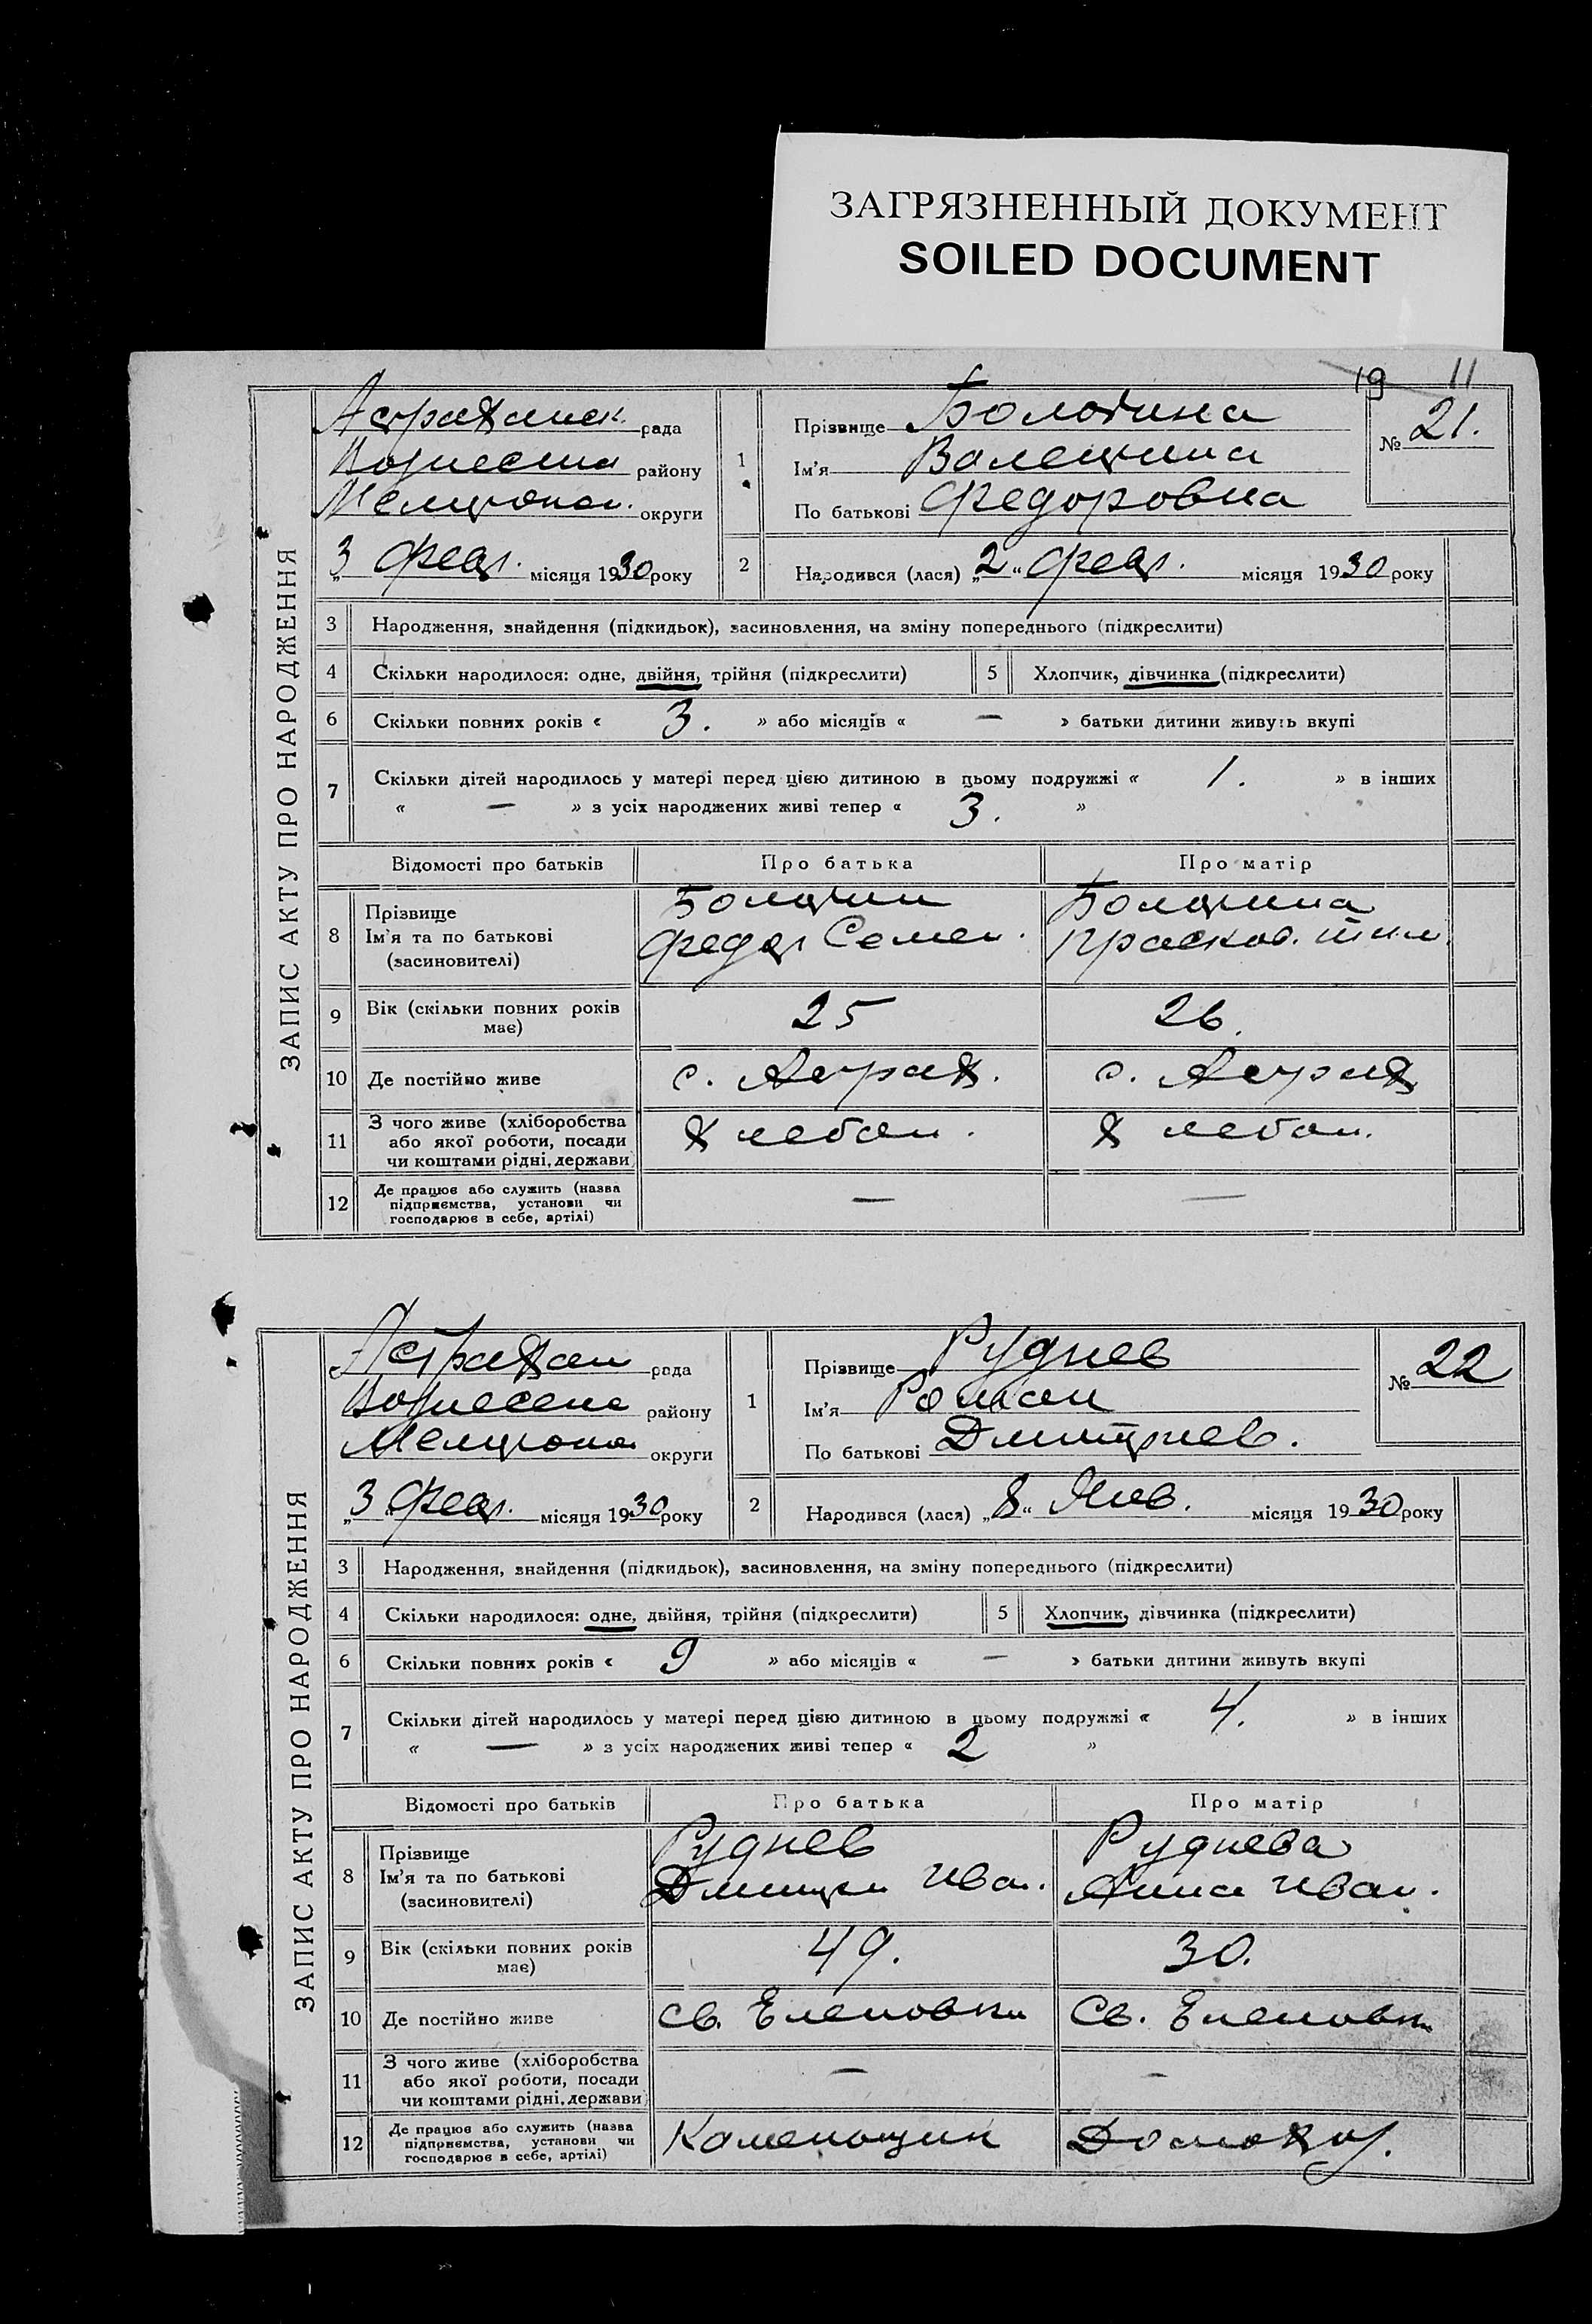 ЗАГРЯЗНЕННЫЙ ДОКУМЕНТ
SOILED DOCUMENT
19 11
ЗАПИС АКТУ ПРО НАРОДЖЕННЯ
Астраханск. рада
Вознесенск району
Мелитопол. округи
„3 февр. місяця 1930 року
1 Прізвище Болотина
Ім'я Валентина
По батькові Федоровна
№ 21.
2 Народився (лася) „2“ февр. місяця 1930 року
3 Народження, знайдення (підкидьок), засиновлення, на зміну попереднього (підкреслити)
4 Скільки народилося: одне, двійня, трійня (підкреслити) 5 Хлопчик, дівчинка (підкреслити)
6 Скільки повних років « 3. » або місяців « — » батьки дитини живуть вкупі
7 Скільки дітей народилось у матері перед цією дитиною в цьому подружжі « 1. » в інших
« — » з усіх народжених живі тепер « 3. »
Відомості про батьків Про батька Про матір
8 Прізвище Болотин Болотина
Ім'я та по батькові Федор Семен. Прасков. Тим.
(засиновителі)
9 Вік (скільки повних років має) 25 26.
10 Де постійно живе с. Астрах. с. Астрах
11 З чого живе (хліборобства
або якої роботи, посади хлебоп. хлебоп.
чи коштами рідні, держави)
12 Де працює або служить (назва
підприємства, установи чи — —
господарює в себе, артілі)
ЗАПИС АКТУ ПРО НАРОДЖЕННЯ
Астрахан рада
Вознесенс району
Мелитопол округи
„3 февр. місяця 1930 року
1 Прізвище Руднев
Ім'я Роман
По батькові Дмитриев.
№ 22
2 Народився (лася) „8“ Янв. місяця 1930 року
3 Народження, знайдення (підкидьок), засиновлення, на зміну попереднього (підкреслити)
4 Скільки народилося: одне, двійня, трійня (підкреслити) 5 Хлопчик, дівчинка (підкреслити)
6 Скільки повних років « 9 » або місяців « — » батьки дитини живуть вкупі
7 Скільки дітей народилось у матері перед цією дитиною в цьому подружжі « 4. » в інших
« — » з усіх народжених живі тепер « 2 »
Відомості про батьків Про батька Про матір
8 Прізвище Руднев Руднева
Ім'я та по батькові Дмитри Иван. Анна Иван.
(засиновителі)
9 Вік (скільки повних років має) 49. 30.
10 Де постійно живе Св. Еленовки Св. Еленовки
11 З чого живе (хліборобства
або якої роботи, посади — —
чи коштами рідні, держави)
12 Де працює або служить (назва
підприємства, установи чи Каменощик Домохоз.
господарює в себе, артілі)